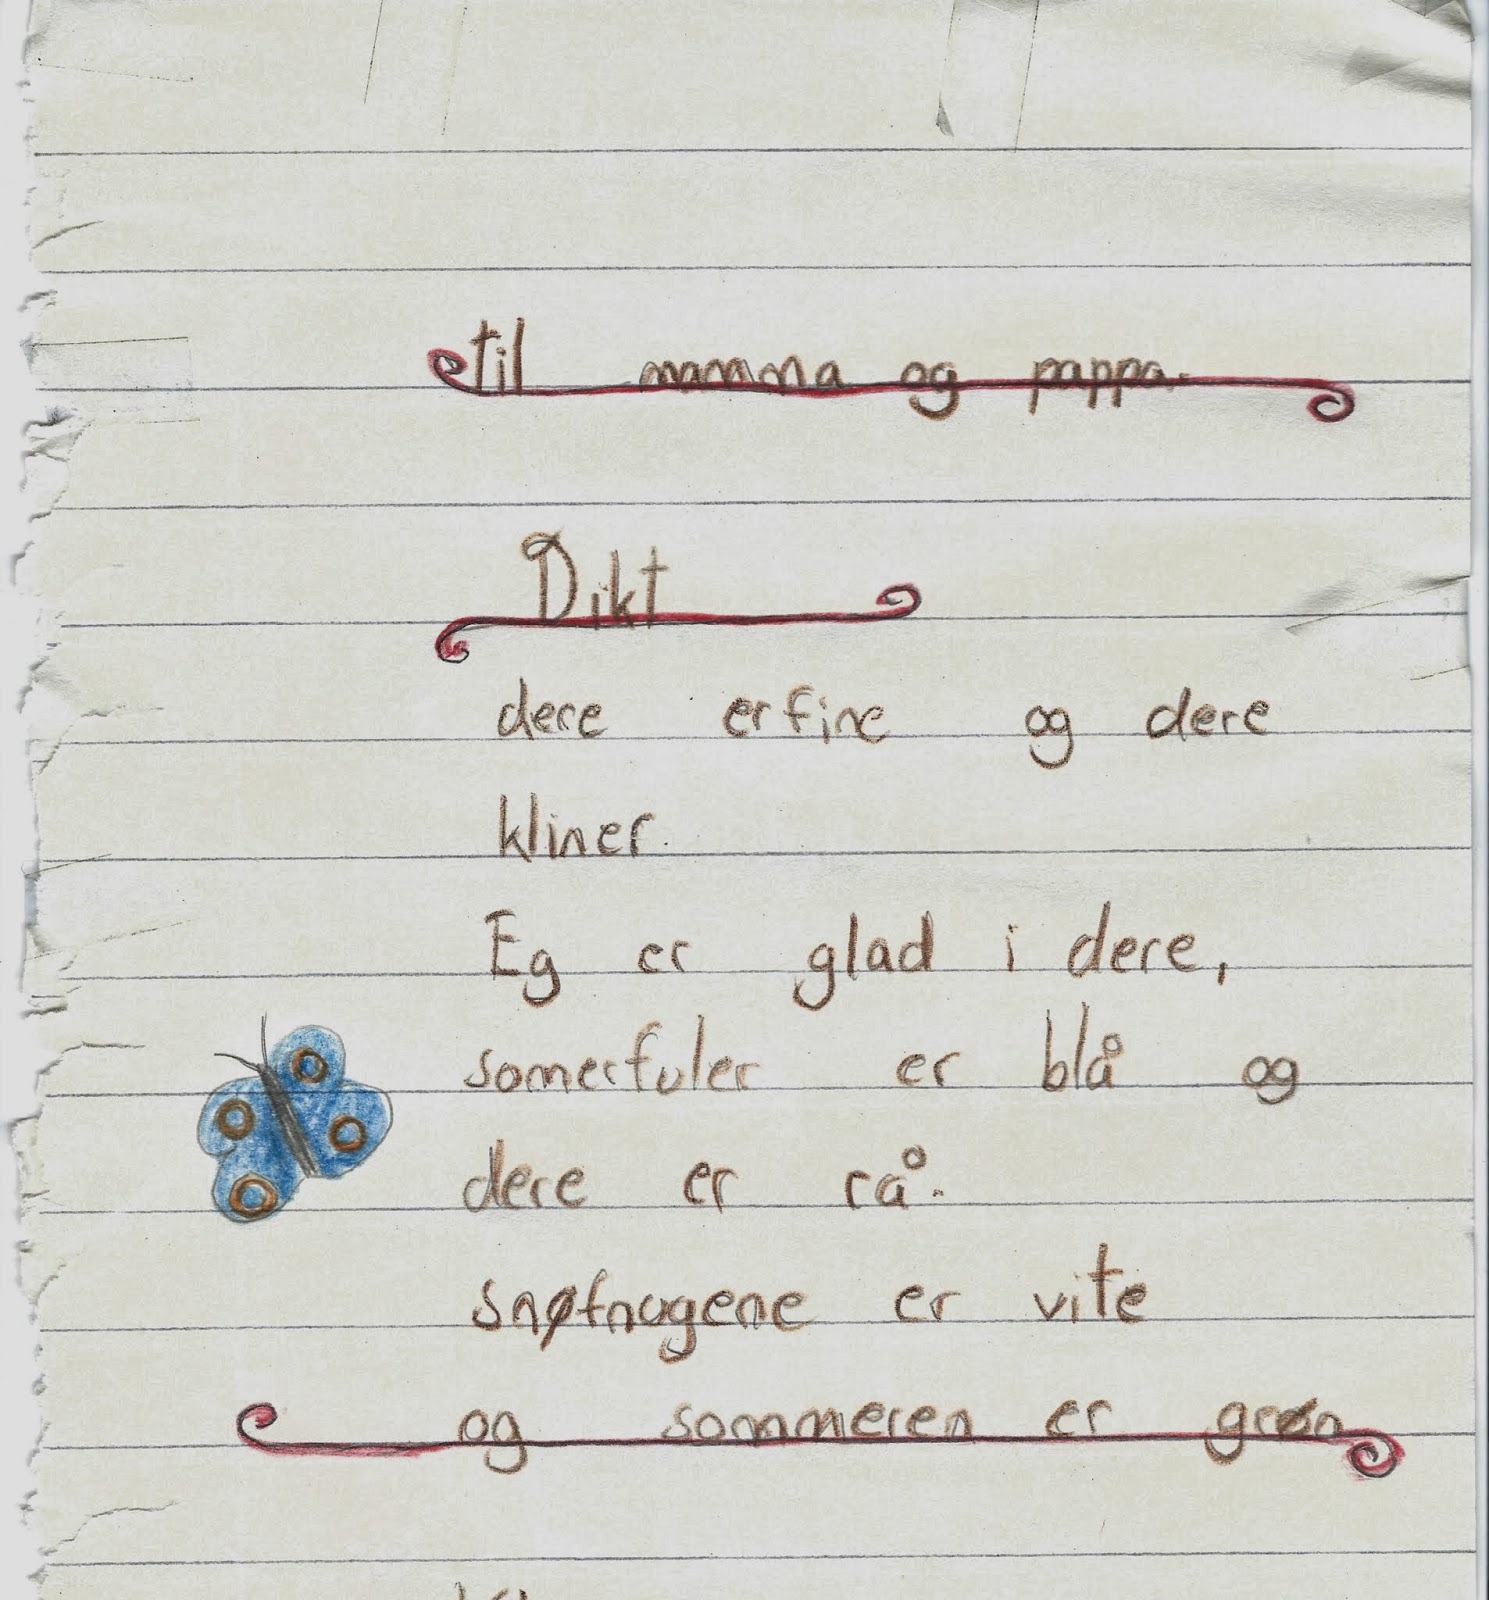 til mamma og pappa.
Dikt
dere er fine og dere
kliner.
Eg er glad i dere,
somerfuler er blå og
dere er rå.
snøfnugene er vite
og sommeren er grøn